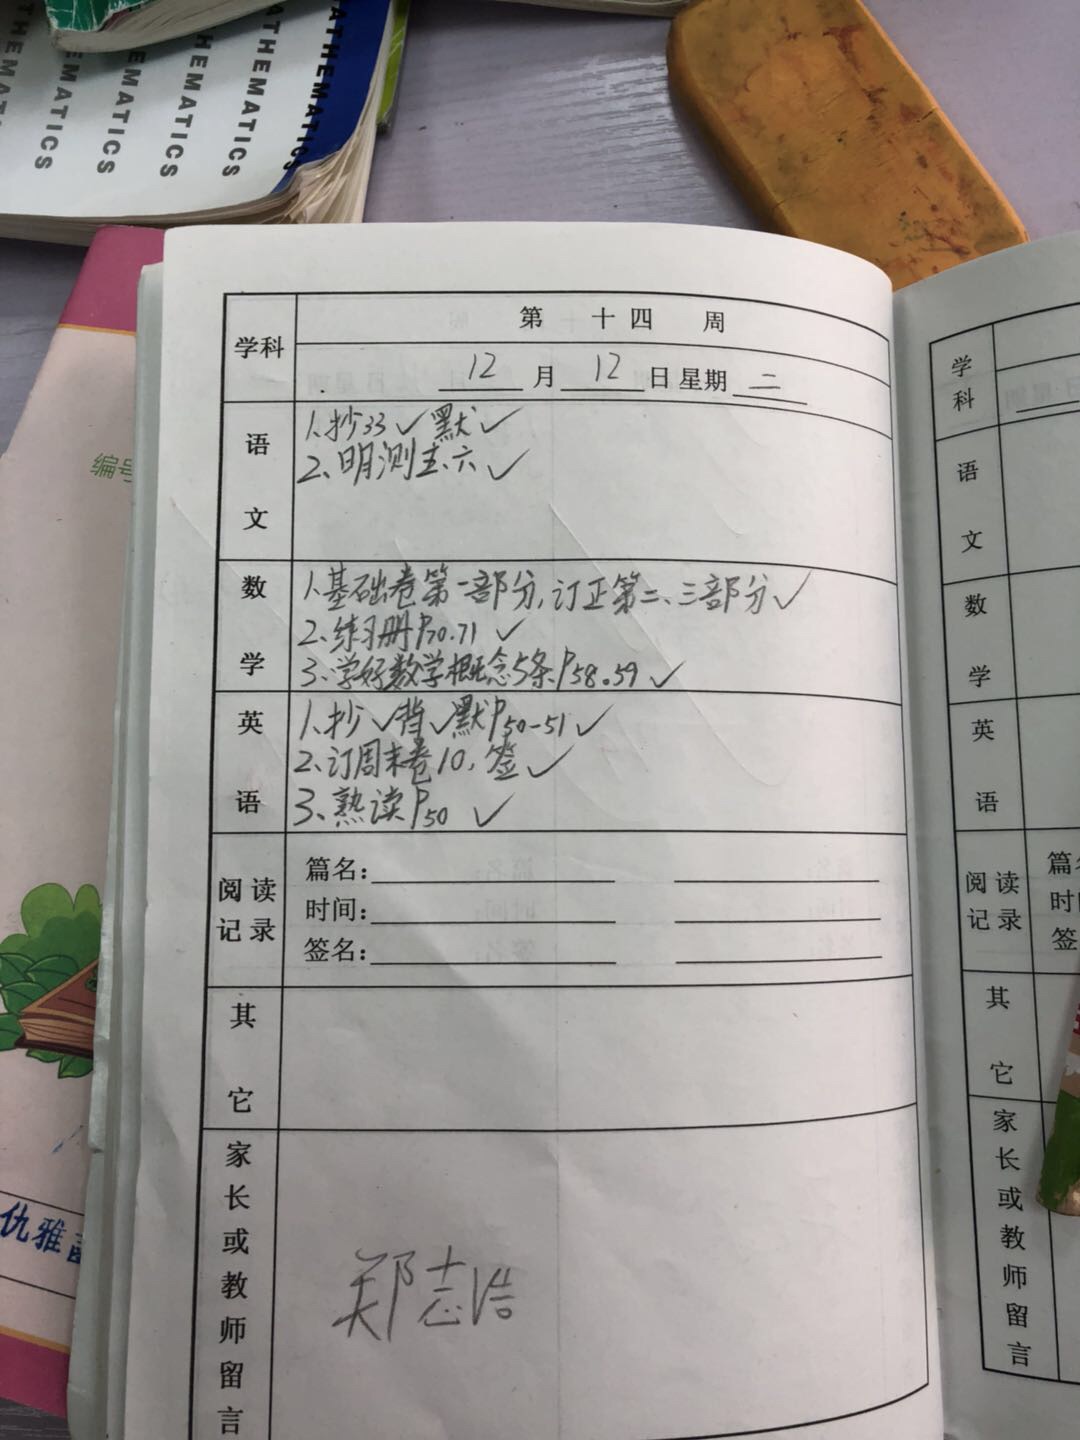 MATHEMATICS
MATHEMATICS
MATHEMATICS
MATHEMATICS
MATHEMATICS
编号
仇雅
学科
第 十四 周
12月12日星期二
语文
1、抄33✓默✓
2、明测五、六✓
数学
1、基础卷第一部分,订正第二、三部分✓
2、练习册P70.71 ✓
3、学好数学概念5条P58.59✓
英语
1、抄✓背✓默P50-51✓
2、订周末卷10,签✓
3、熟读P50 ✓
阅读记录
篇名:
时间:
签名:
其它
家长或教师留言
郑志浩
学科
语文
数学
英语
阅读记录
篇
时
签
其它
家长或教师留言